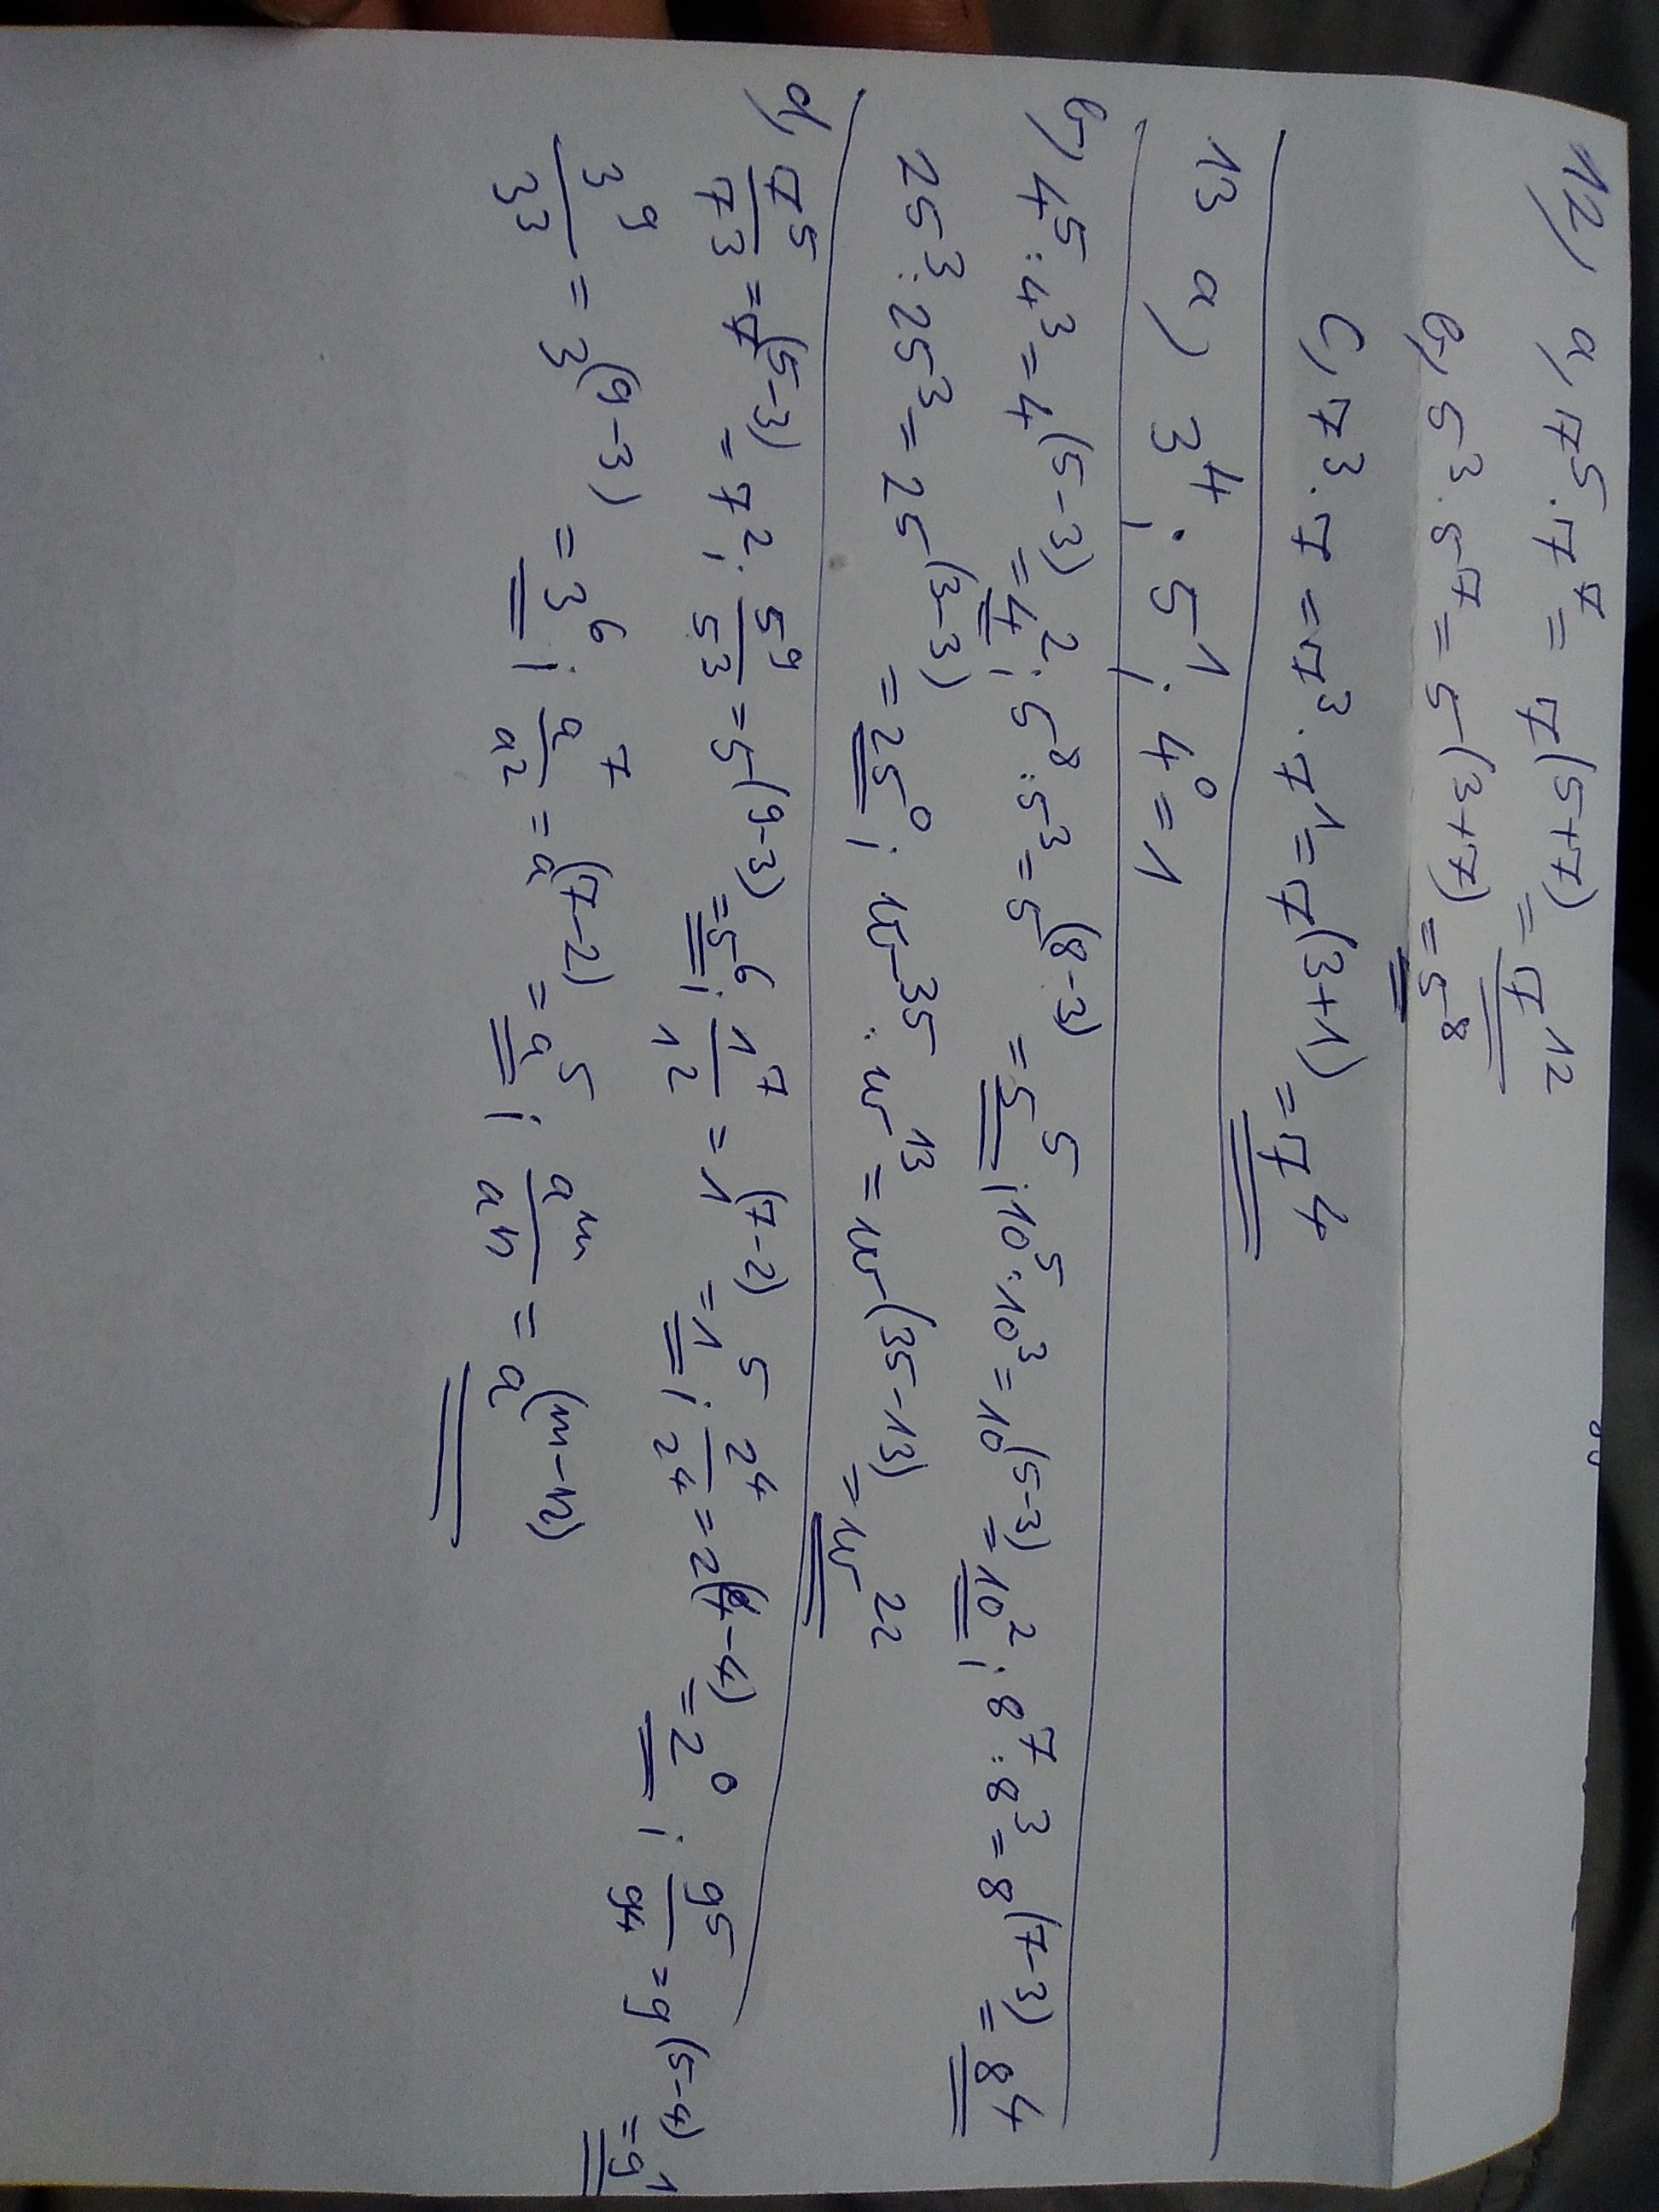 12) a, 7⁵ · 7⁷ = 7^(5+7) = 7¹²
b, 5³ · 5⁷ = 5^(3+7) = 5⁸
c, 7³ · 7 = 7³ · 7¹ = 7^(3+1) = 7⁴
13 a) 3⁴ ; 5¹ ; 4⁰ = 1
b, 4⁵ : 4³ = 4^(5-3) = 4² ; 5⁸ : 5³ = 5^(8-3) = 5⁵ ; 10⁵ : 10³ = 10^(5-3) = 10² ; 8⁷ : 8³ = 8^(7-3) = 8⁴
25³ : 25³ = 25^(3-3) = 25⁰ ; w³⁵ : w¹³ = w^(35-13) = w²²
d, 7⁵/7³ = 7^(5-3) = 7² ; 5⁹/5³ = 5^(9-3) = 5⁶ ; 1⁷/1² = 1^(7-2) = 1⁵ ; 2⁴/2⁴ = 2^(4-4) = 2⁰ ; 9⁵/9⁴ = 9^(5-4) = 9¹
3⁹/3³ = 3^(9-3) = 3⁶ ; a⁷/a² = a^(7-2) = a⁵ ; a^m/a^n = a^(m-n)